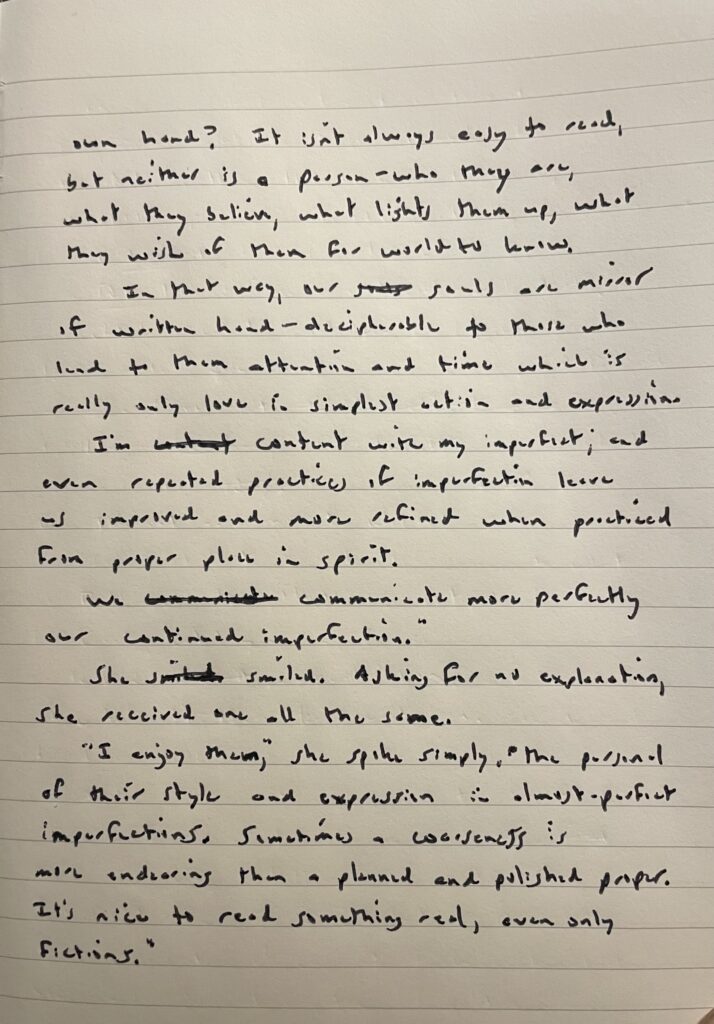 own hand? It isn't always easy to read,
but neither is a person-who they are,
what they believe, what lights them up, what
they wish of them for world to know.
In that way, our souls are mirror
of written hand-decipherable to those who
lend to them attention and time which is
really only love in simplest action and expression.
I'm content content with my imperfect; and
even repeated practices of imperfection leave
us improved and more refined when practiced
from proper place in spirit.
We communicate communicate more perfectly
our continued imperfection."
She smiled smiled. Asking for no explanation,
she received one all the same.
"I enjoy them," she spoke simply, "the personal
of their style and expression in almost-perfect
imperfections. Sometimes a coarseness is
more endearing than a planned and polished proper.
It's nice to read something real, even only
fictions."